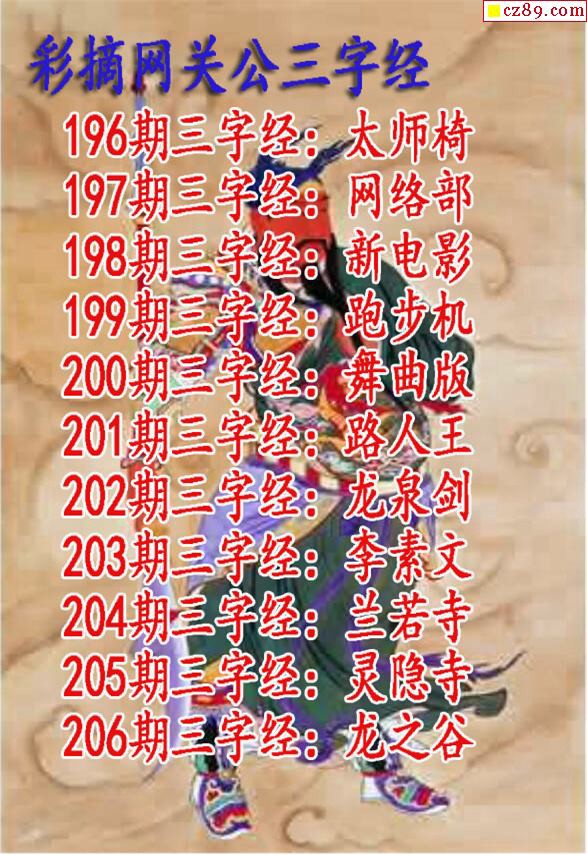 cz89.com
彩摘网关公三字经
196期三字经：太师椅
197期三字经：网络部
198期三字经：新电影
199期三字经：跑步机
200期三字经：舞曲版
201期三字经：路人王
202期三字经：龙泉剑
203期三字经：李素文
204期三字经：兰若寺
205期三字经：灵隐寺
206期三字经：龙之谷